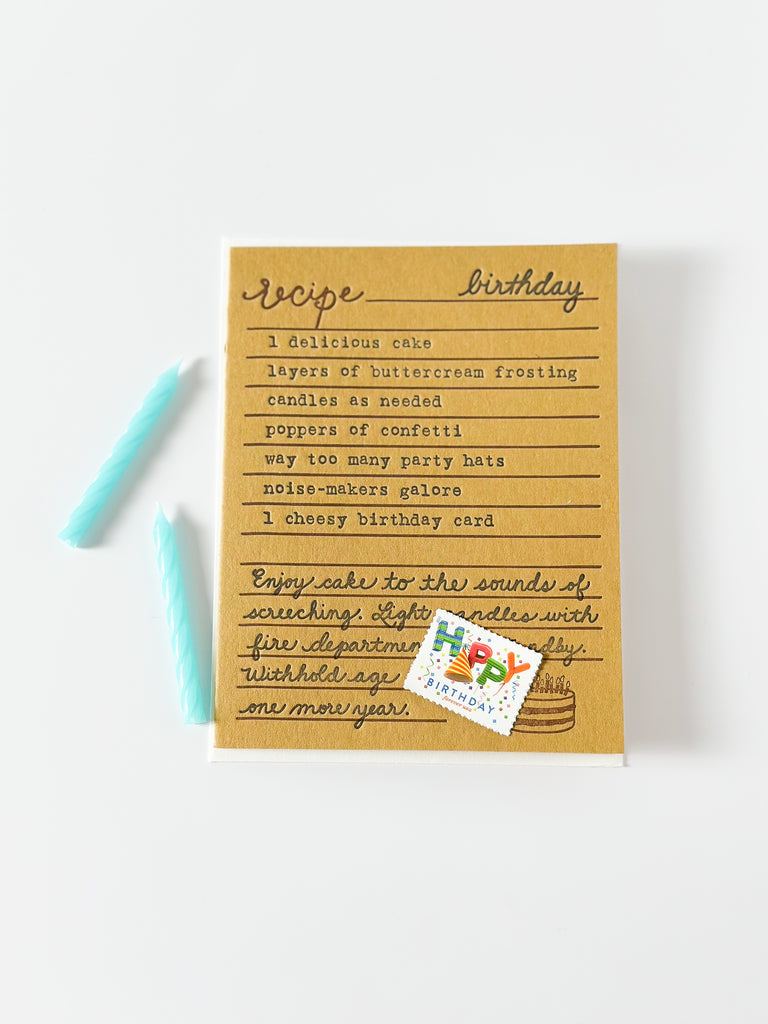 recipe birthday
1 delicious cake
layers of buttercream frosting
candles as needed
poppers of confetti
way too many party hats
noise-makers galore
1 cheesy birthday card
Enjoy cake to the sounds of
screeching. Light candles with
fire departmen ndby.
Withhold age
one more year.
HAPPY
BIRTHDAY
FOREVER USA